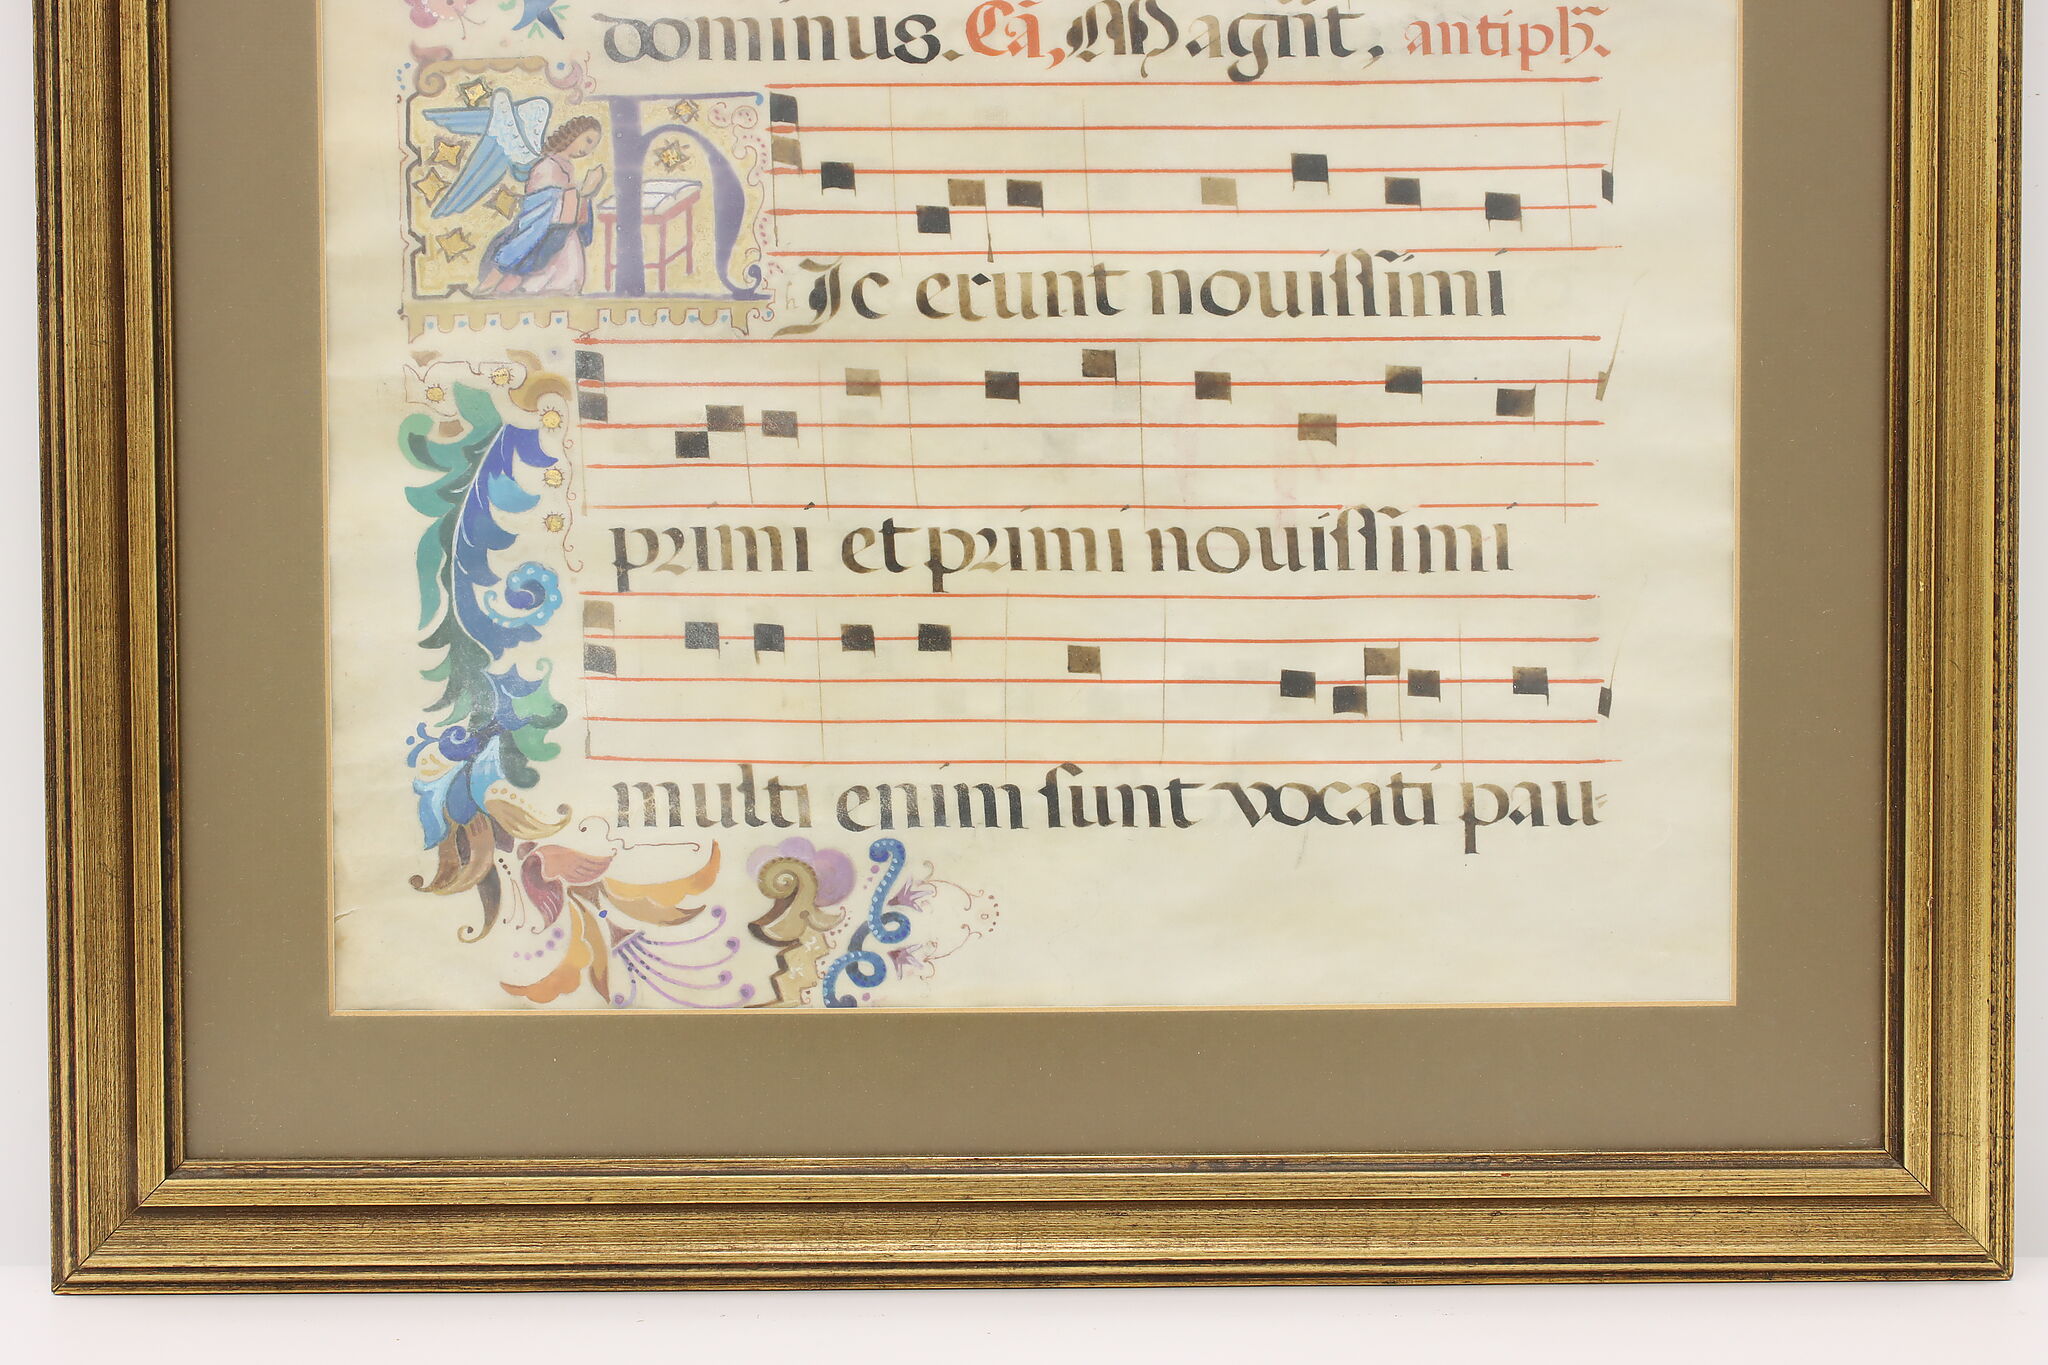 dominus. Cã, Magñt, antiphᷓ.
h Jc erunt nouissimi
primi et primi nouissimi
multi enim sunt vocati pau=